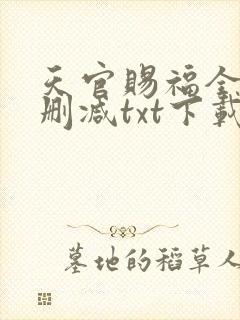 天官赐福全
删减txt下载
墓地的稻草人